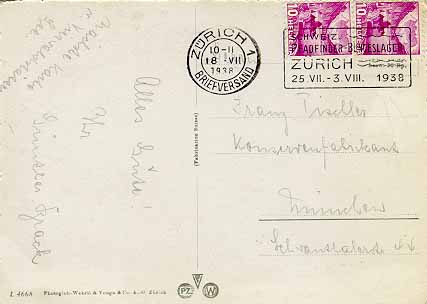 Nächste Karte
Alles Gute!
Ihr
Günther
L 4668 Photoglob-Wehrli & Vouga & Co. A.-G. Zürich
(Fabrication Suisse)
PZ W
ZÜRICH 1
10-11
18 VII
1938
BRIEFVERSAND
HELVETIA 10
SCHWEIZ.
PFADFINDER-BUNDESLAGER
ZÜRICH
25. VII. - 3. VIII. 1938
Franz Tischler
Konservenfabrikant
München
Schwanthalerstr.